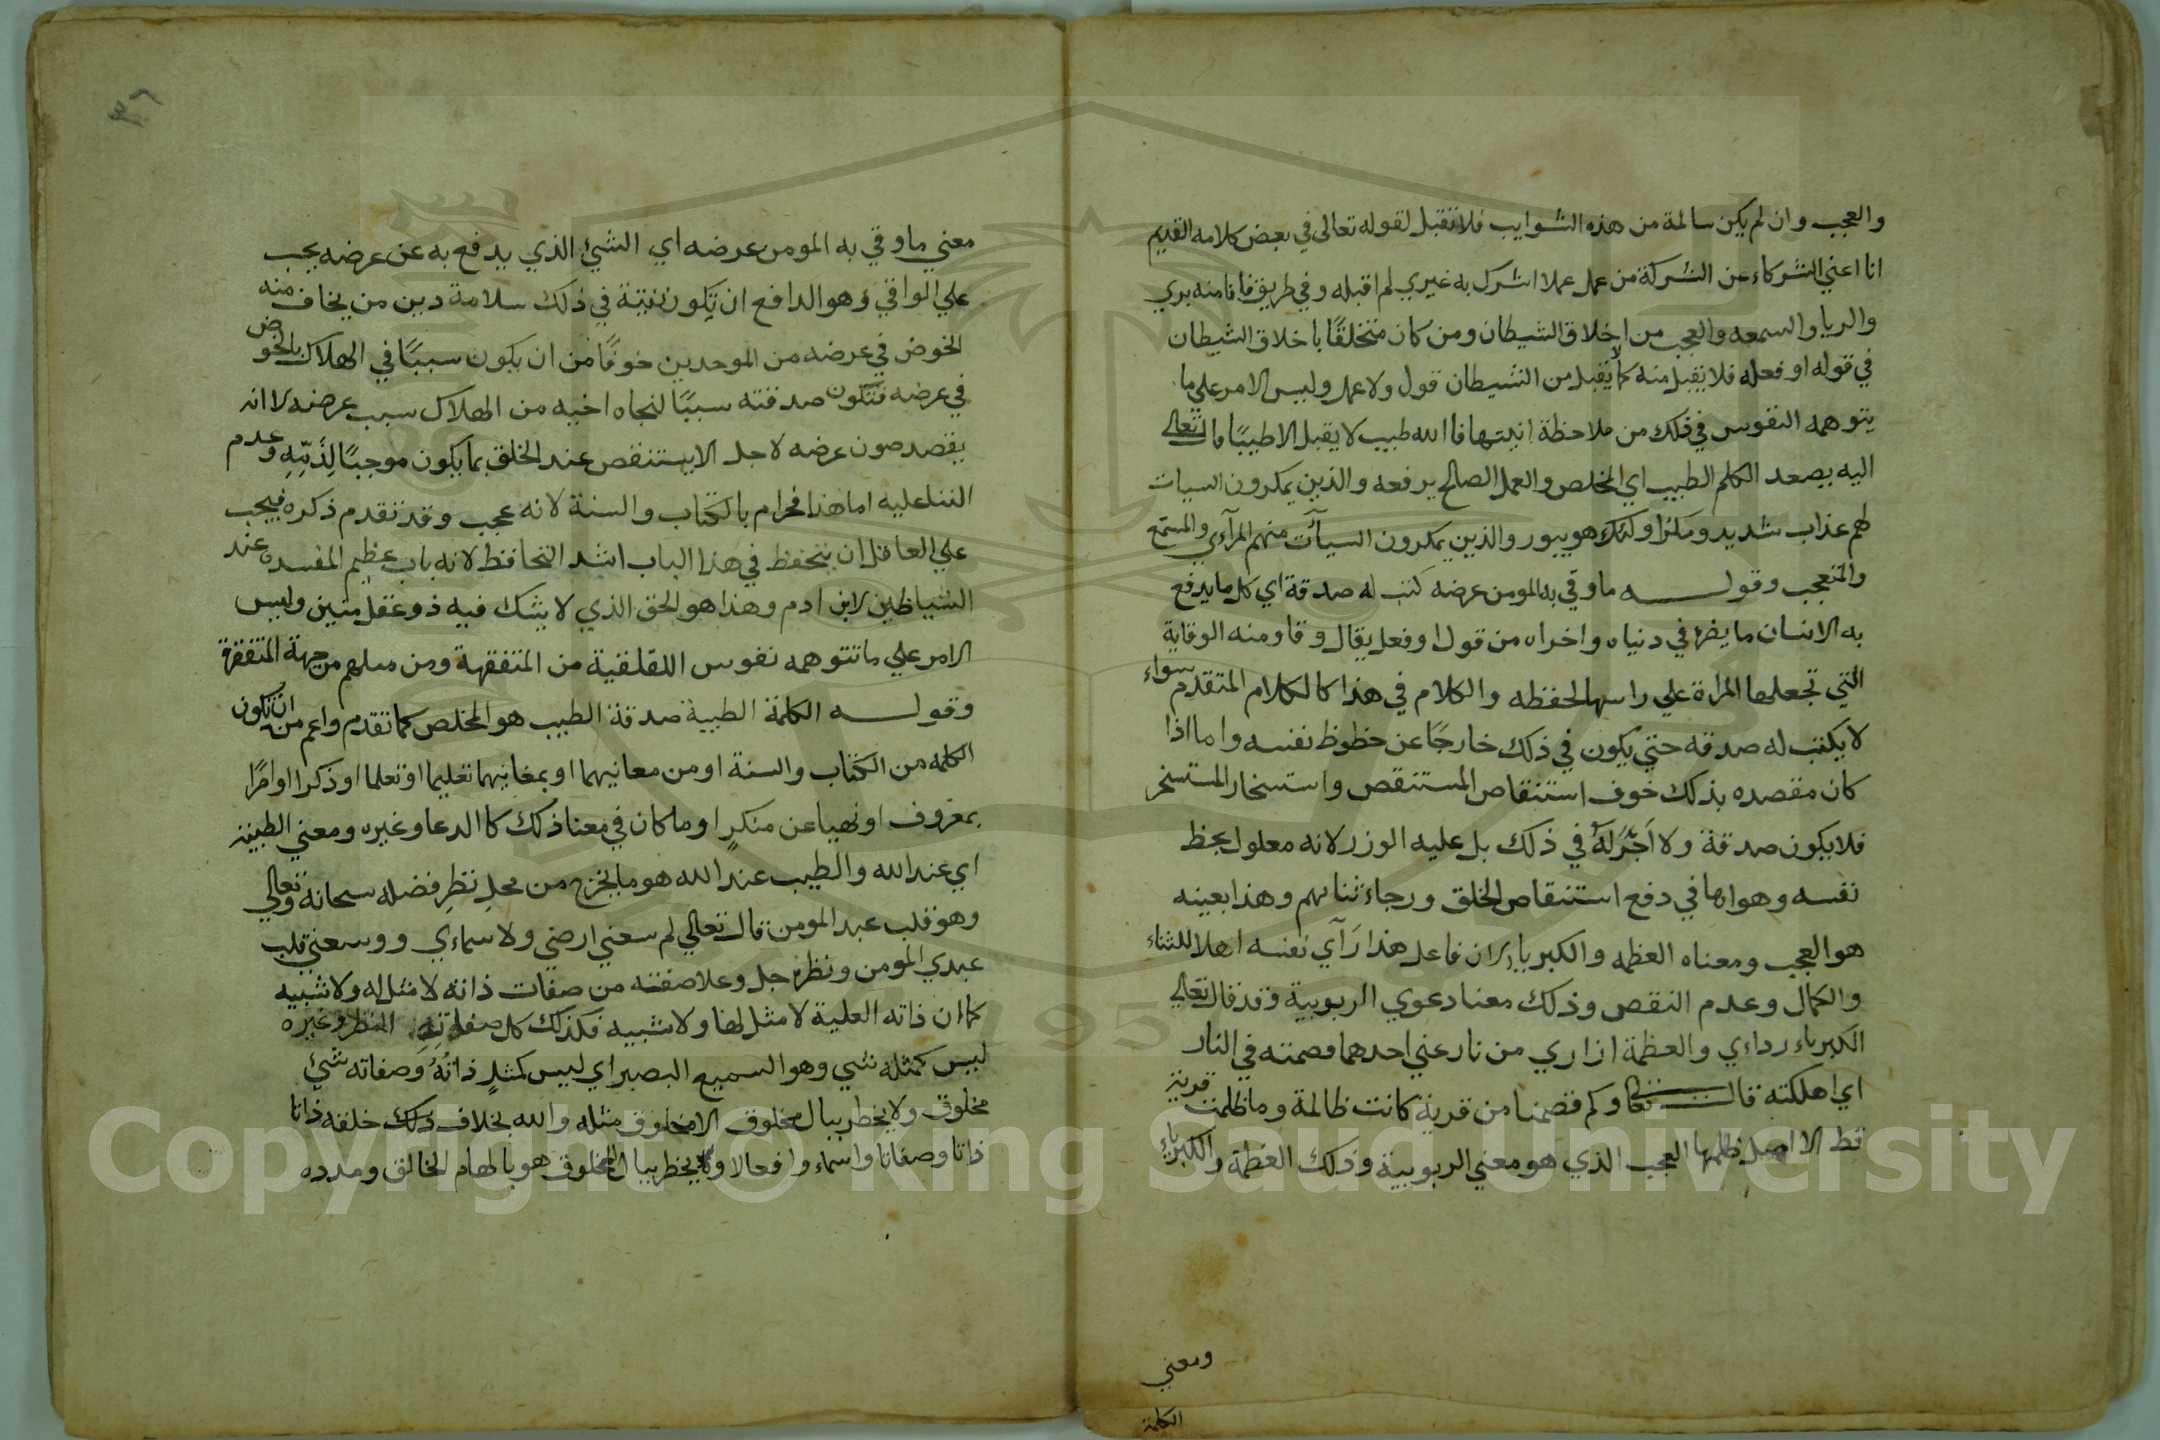 والعجب وان لم يكن سالمة من هذه الشوايب فلا تقبل لقوله تعالى في بعض كلامه القديم
انا اغني الشركاء عن الشركة من عمل عملا اشرك به غيري لم اقبله وفي طريق فانا منه بري
والريا والسمعه والعجب من اخلاق الشيطان ومن كان متخلقًا باخلاق الشيطان
في قوله او فعله فلا يقبل منه كما لا يقبل من الشيطان قول ولا عمل وليس الامر على ما
يتوهمه النفوس في ذلك من ملاحظة انيتها فا الله طيب لا يقبل الا طيبًا قال تعالى
اليه يصعد الكلم الطيب اي المخلص والعمل الصالح يرفعه والذين يمكرون السيات
لهم عذاب شديد ومكر اولئك هو يبور والذين يمكرون السيآت منهم المرآءي والمستمع
والمتعجب وقوله ما وقي به المومن عرضه كتب له صدقة اي كل ما يدفع
به الانسان ما يضره في دنياه واخراه من قول او فعل يقال وقا ومنه الوقاية
التي تجعلها المراة علي راسها لحفظه والكلام في هذا كالكلام المتقدم سواء
لا يكتب له صدقه حتي يكون في ذلك خارجًا عن حظوظ نفسه واما اذا
كان مقصده بذلك خوف استنقاص المستنقص واستسخار المستسخر
فلا يكون صدقة ولا اجْرَ لَهُ في ذلك بل عليه الوزر لانه معلول بحظ
نفسه وهواها في دفع استنقاص الخلق ورجاء ثنايهم وهذا بعينه
هو العجب ومعناه العظمه والكبريا لان فاعل هذا رَآي نفسه اهلا للثناء
والكمال وعدم النقص وذلك معنا دعوي الربوبية وقد قال تعالى
الكبرياء رداءي والعظمة ازاري من نازعني احدهما قصمته في النار
اي اهلكته قال تعالى وكم قصمنا من قرية كانت ظالمة وما ظلمت قرية
قط الا اصل ظلمها العجب الذي هو معني الربوبية وذلك العظمة والكبرياء
ومعني
الكلمة
معني ما وقي به المومن عرضه اي الشئ الذي يدفع به عن عرضه يجب
علي الواقي وهو الدافع ان تكون نيته في ذلك سلامة دين من يخاف منه
الخوض في عرضه من الموحدين خوفًا من ان يكون سببًا في الهلاك بالخوض
في عرضه فتكون صدقته سببًا لنجاه اخيه من الهلاك سبب عرضه لا انه
يقصد صون عرضه لاجل الا يستنقص عند الخلق بما يكون موجبًا لِذَمِّهِ وعدم
الثنا عليه اما هذا فحرام بالكتاب والسنة لانه عجب وقد تقدم ذكره فيجب
علي العاقل ان يتحفظ في هذا الباب اشد التحافظ لانه باب عظيم المفسده عند
الشياطين لابن ادم وهذا هو الحق الذي لا يشك فيه ذو عقل متين وليس
الامر علي ما تتوهمه نفوس اللقلقية من المتفقهة ومن مثلهم من جهة المتفقرة
وقوله الكلمة الطيبة صدقة الطيب هو المخلص كما تقدم واعم من ان تكون
الكلمه من الكتاب والسنة او من معانيهما او بمعانيهما تعليما او تعلما او ذكرا او امرًا
بمعروف او نهيا عن منكرٍ او ما كان في معنا ذلك كا الدعا وغيره ومعني الطيبة
اي عند الله والطيب عند الله هو ما يخرج من محلِ نظرِ فضله سبحانه وتعالي
وهو قلب عبد المومن قال تعالي لم سعني ارضي ولا سماءي ووسعني قلب
عبدي المومن ونظره جل وعلا صفته من صفات ذاته لا مثل له ولا شبيه
كما ان ذاته العلية لا مثل لها ولا شبيه فكذلك كل صفاته النظر وغيره
ليس كمثله شي وهو السميع البصير اي ليس كمثلِ ذاتُهُ وصفاته شئ
مخلوق ولا يخطر ببال مخلوق الا مخلوق مثله والله بخلاف ذلك خلقه ذاتا
ذاتا وصفاتا واسماء وافعالا ولا يخطر ببال المخلوق هو بالهام الخالق ومدده